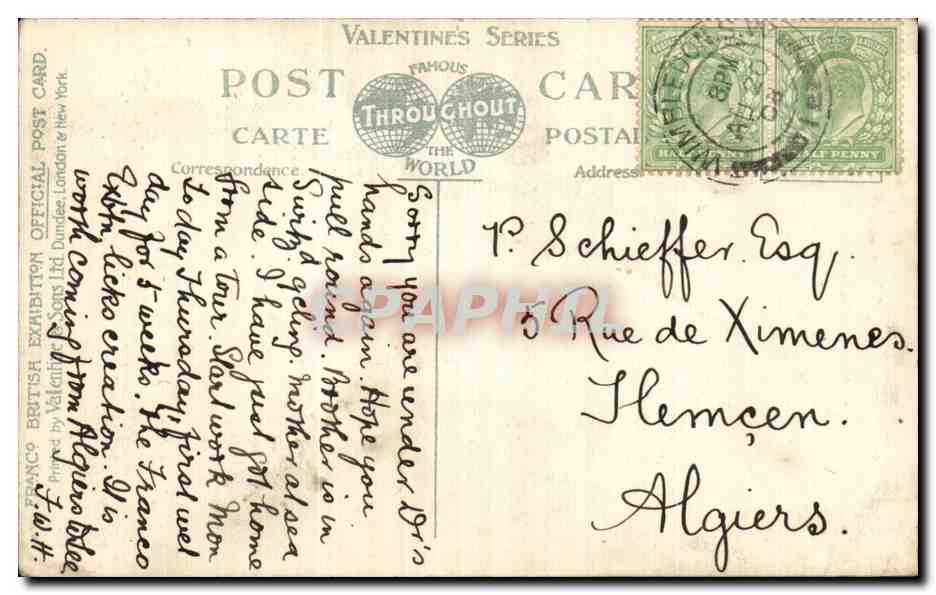 VALENTINE'S SERIES
POST CAR
FAMOUS
THROUGHOUT
THE
WORLD
CARTE POSTAL
Correspondence. Address
HALF PENNY
WIMBLEDON. S.W.
8 PM
AU 20
08
P. Schieffer. Esq.
5 Rue de Ximenes.
Tlemçen.
Algiers.
Sorry you are under Dr's
hands again. Hope you
pull round. Brother is in
Switzd geling. Mother at sea
side. I have just got home
from a tour. Start work Mon
To day Thursday, first wet
day for 5 weeks. The Franco
Exbn licks creation. It is
worth coming from Algiers to see
F.W.H.
FRANCO BRITISH EXHIBITION OFFICIAL POST CARD.
Printed by Valentine & Sons Ltd. Dundee, London & New York.
CPAPHIL